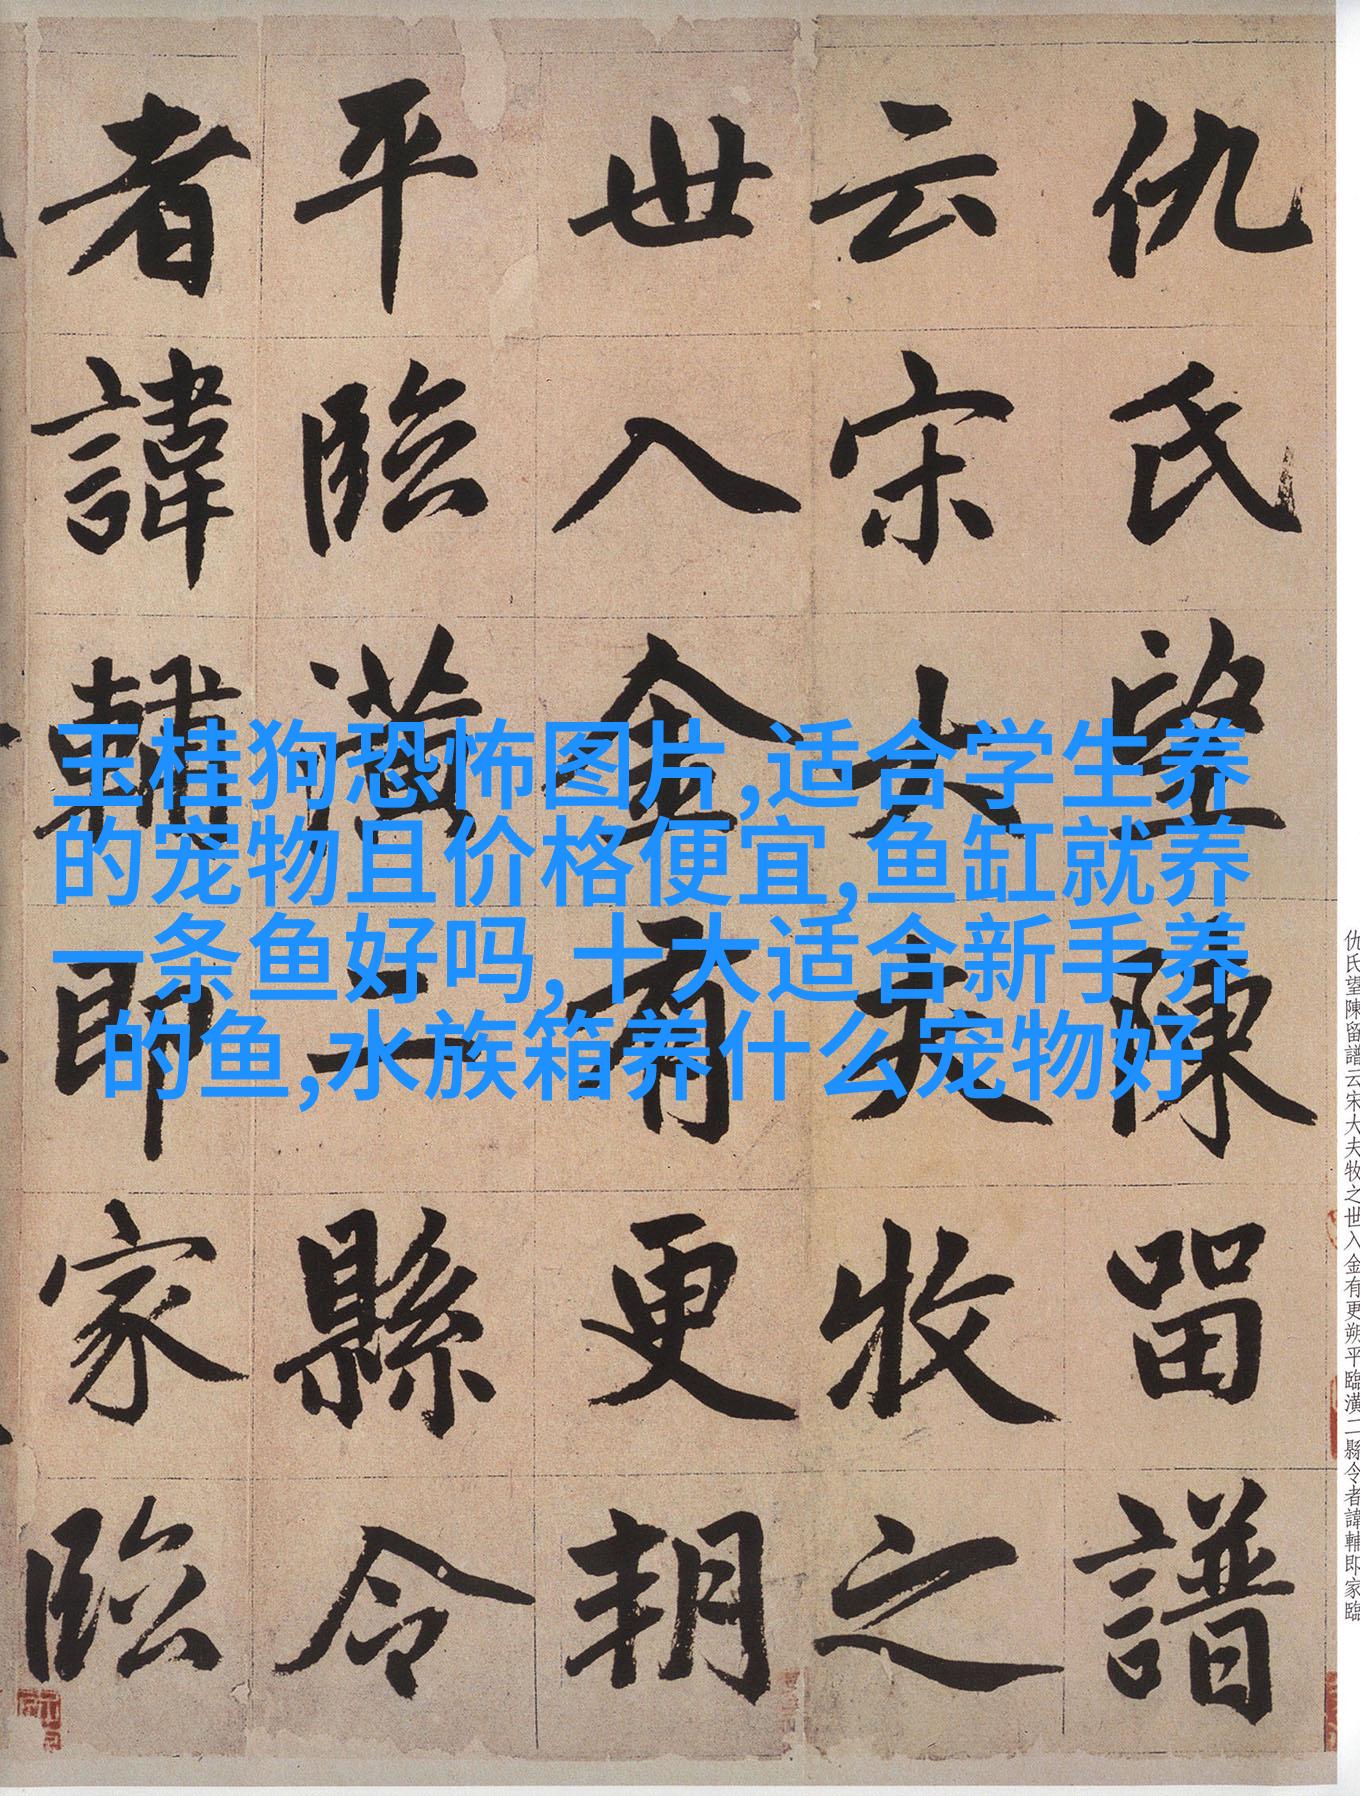 仇氏望陳留譜
云宋大夫牧之
世入金有更朔
平臨潢二縣令
者諱輔即家臨
玉桂狗恐怖图片,适合学生养
的宠物且价格便宜,鱼缸就养
一条鱼好吗,十大适合新手养
的鱼,水族箱养什么宠物好
仇氏望陳留譜云宋大夫牧之世入金有更朔平臨潢二縣令者諱輔即家臨